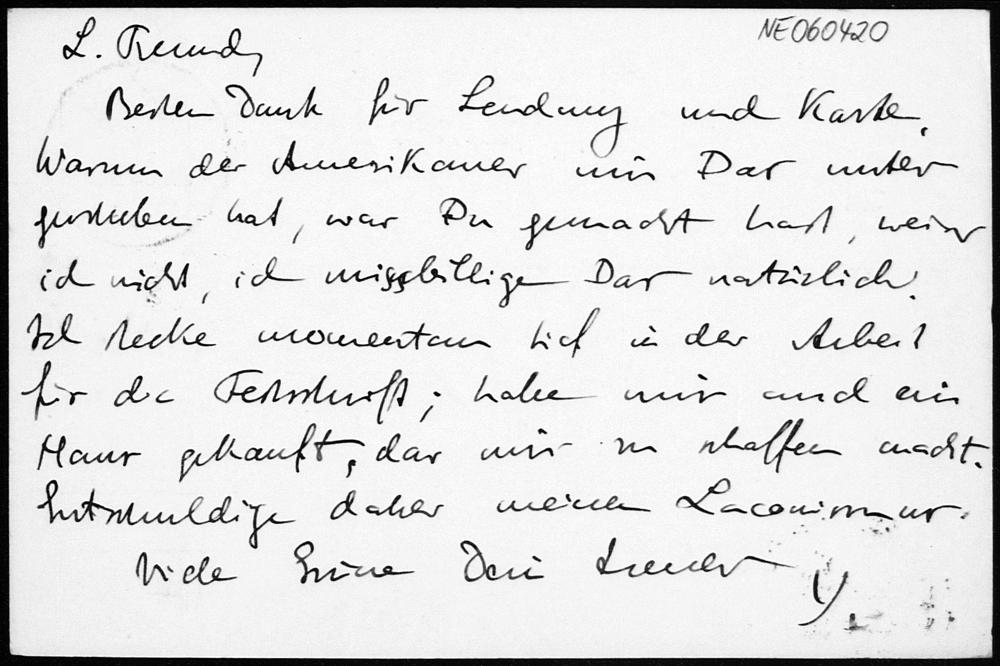 NE060420
L. Freund,
Besten Dank für Sendung und Karte.
Warum der Amerikaner mir Das unter
geschoben hat, was Du gemacht hast, weiss
ich nicht, ich missbillige Das natürlich.
Ich stecke momentan tief in der Arbeit
für die Festschrift; habe mir auch ein
Haus gekauft, das mir zu schaffen macht.
Entschuldige daher meinen Laconismus.
Viele Grüsse Dein